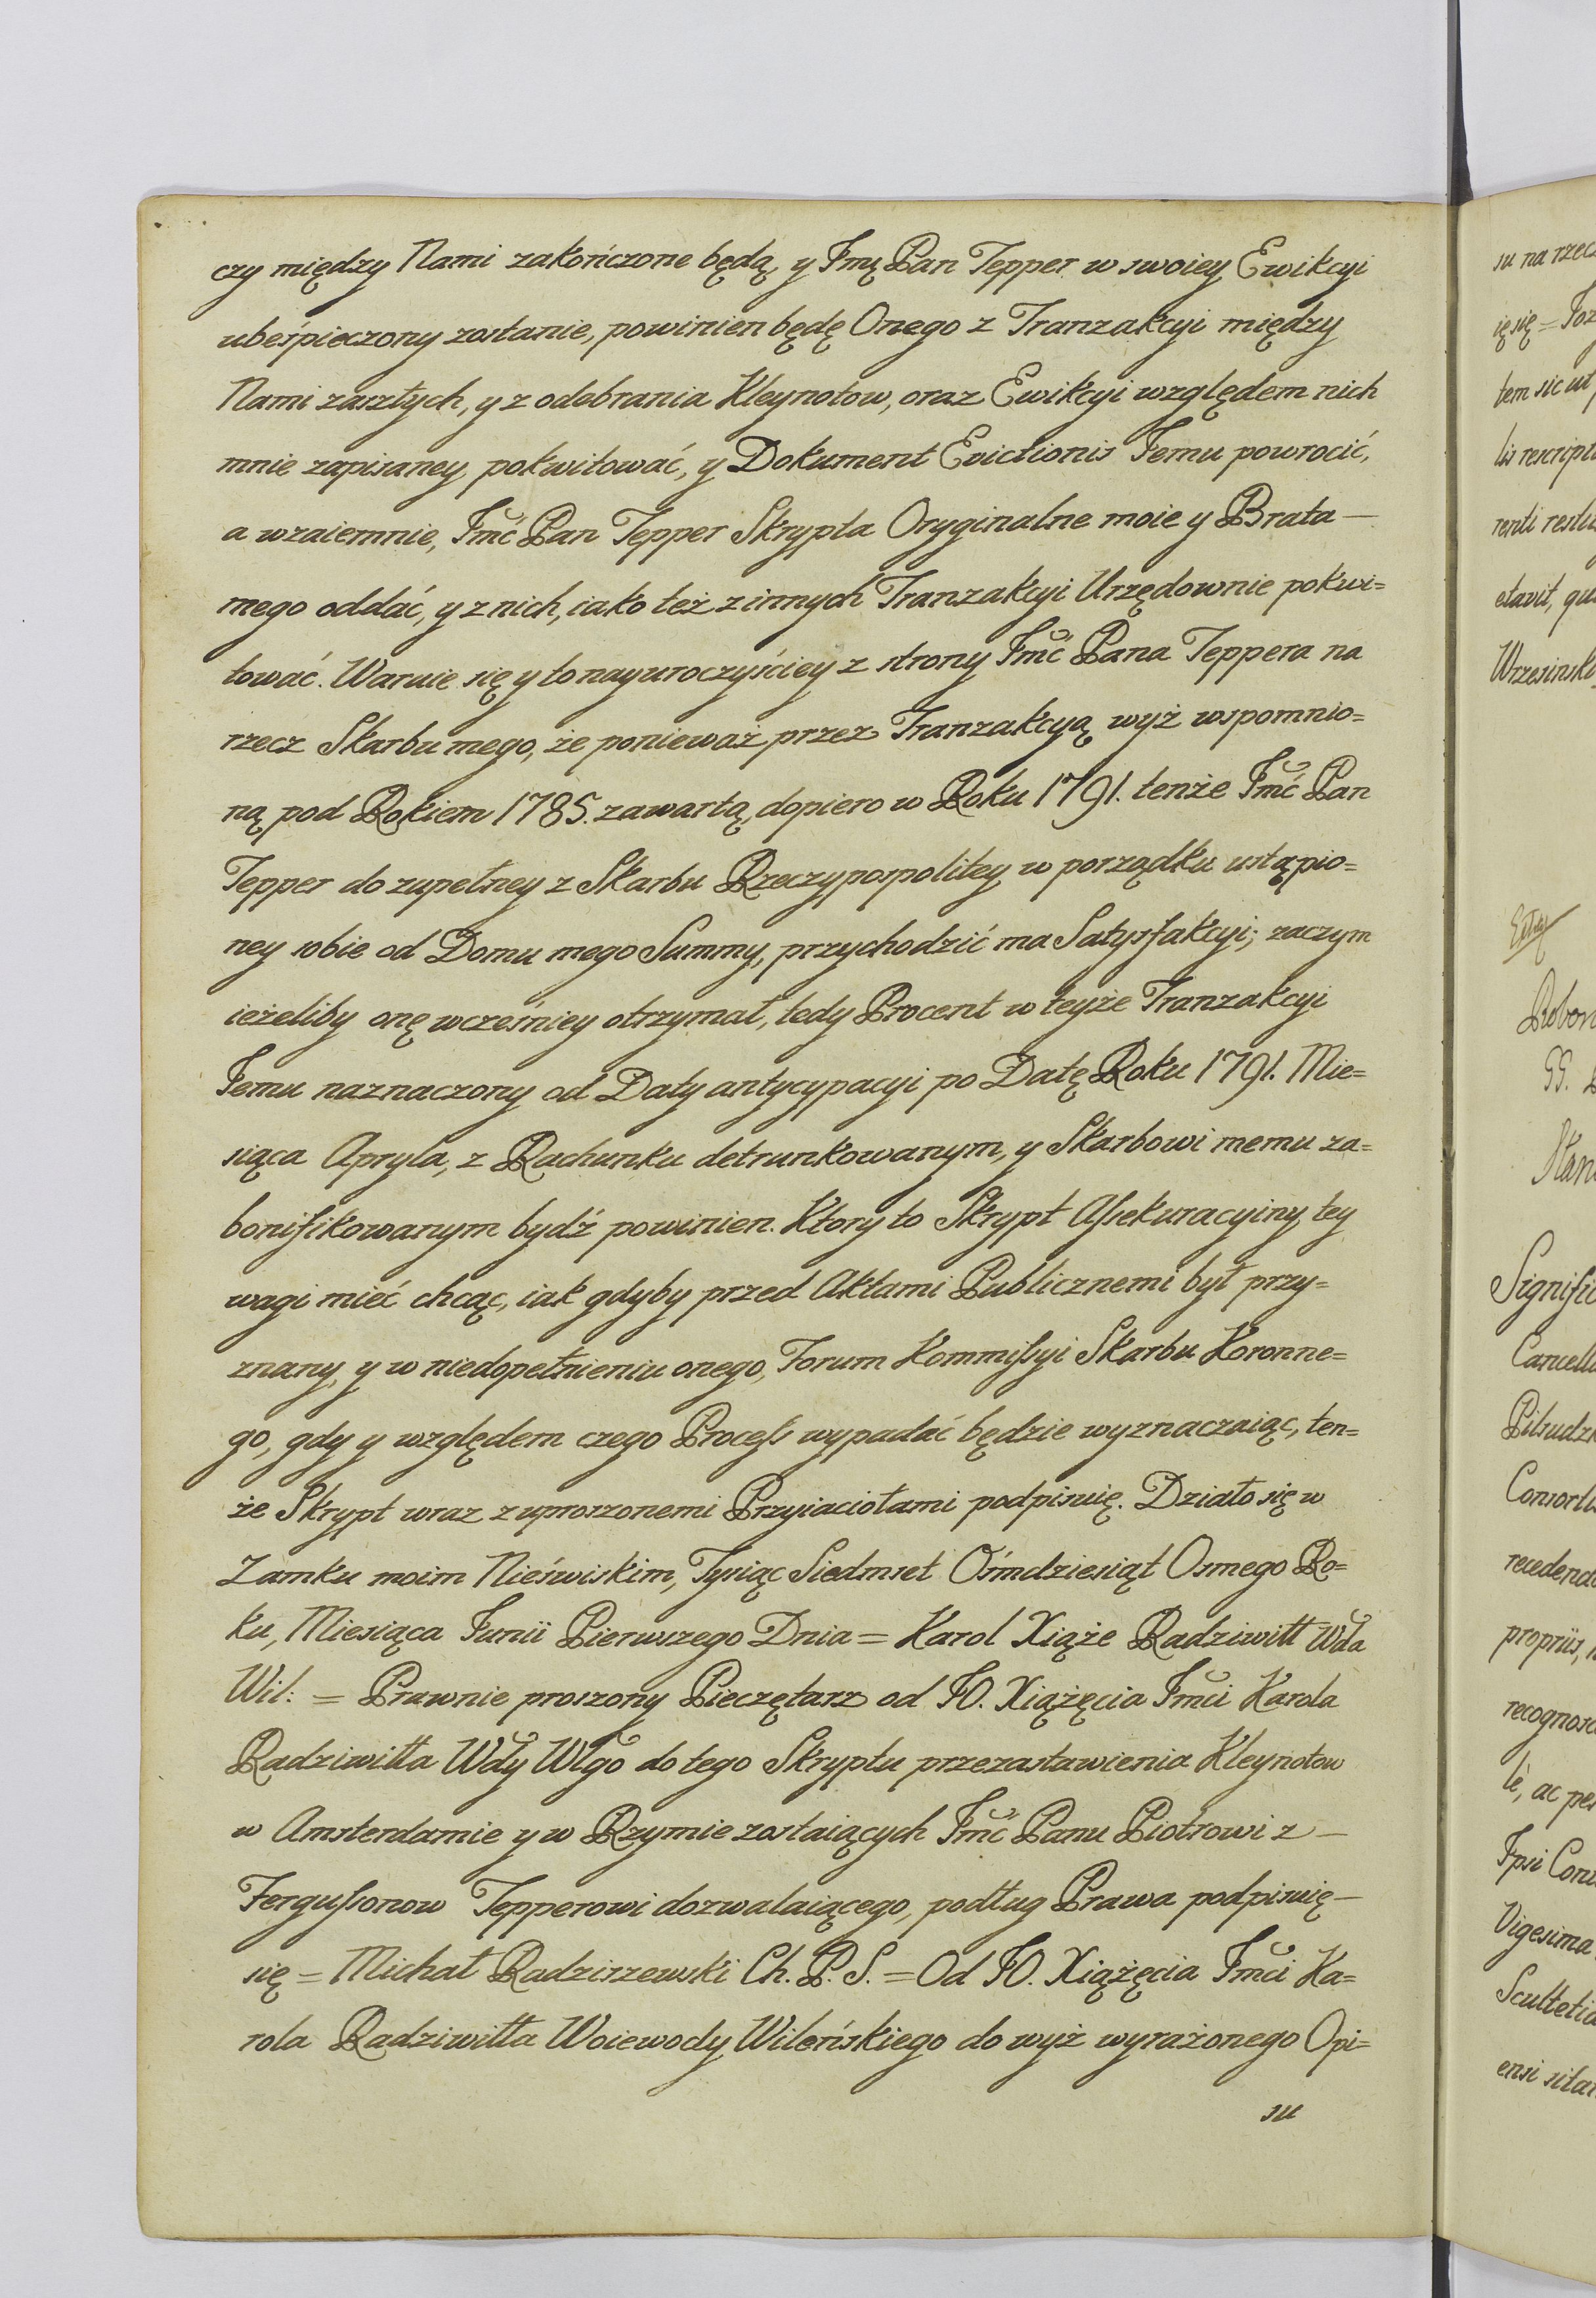 czy między Nami zakończone będą, y Jmę Pan Tepper w swoiey Ewikcyi
ubeśpieczony zostanie, powinien będę Onego z Tranzakcyi między
Nami zaszłych, y z odebrania Kleynotow, oraz Ewikcyi względem nich
mnie zapisaney, pokwitować, y Dokument Evictionis Jemu powrocić,
a wzaiemnie, Jmć Pan Tepper Skrypta Oryginalne moie y Brata —
mego oddać, y z nich, iako też z innych Tranzakcyi Urzędownie pokwi=
tować. Waruie się y to nayuroczyściey z strony Jmć Pana Teppera na
rzecz Skarbu mego, że ponieważ przez Tranzakcyą wyż wspomnio=
ną pod Rokiem 1785. zawartą, dopiero w Roku 1791. tenże Jmć Pan
Tepper do zupełney z Skarbu Rzeczypospolitey w porządku ustąpio=
ney sobie od Domu mego Summy, przychodzić ma Satysfakcyi; zaczym
ieżeliby onę wcześniey otrzymał, tedy Procent w teyże Tranzakcyi
Jemu naznaczony od Daty antycypacyi po Datę Roku 1791. Mie=
siąca Apryla, z Rachunku detrunkowanym, y Skarbowi memu za=
bonifikowanym bydź powinien. Ktory to Skrypt Aſsekuracyiny, tey
wagi mieć chcąc, iak gdyby przed Aktami Publicznemi był przy=
znany, y w niedopełnieniu onego, Forum Kommiſsyi Skarbu Koronne=
go, gdy y względem czego Proceſs wypadać będzie wyznaczaiąc, ten=
że Skrypt wraz z uproszonemi Przyiaciołami podpisuię. Działo się w
Zamku moim Nieświskim, Tysiąc Siedmset Ośmdziesiąt Osmego Ro=
ku, Miesiąca Junii Pierwszego Dnia = Karol Xiąże Radziwiłł Wda
Wil: = Prawnie proszony Pieczętarz od JO. Xiążęcia Jmci Karola
Radziwiłła Wdy Wlgo do tego Skryptu przezastawienia Kleynotow
w Amsterdamie y w Rzymie zostaiących Jmć Panu Piotrowi z —
Ferguſsonow Tepperowi dozwalaiącego, podług Prawa podpisuię —
się = Michał Radziszewski Ch. P. S. = Od JO. Xiążęcia Jmci Ka=
rola Radziwiłła Woiewody Wileńskiego do wyż wyrażonego Opi=
su
su na rzecz
ię się =
tem sic ut
renti
etavit,
Wrzesinski
GG.
Cancella
recedend
propriis,
ac per
Ipsi
Vigesima
ensi